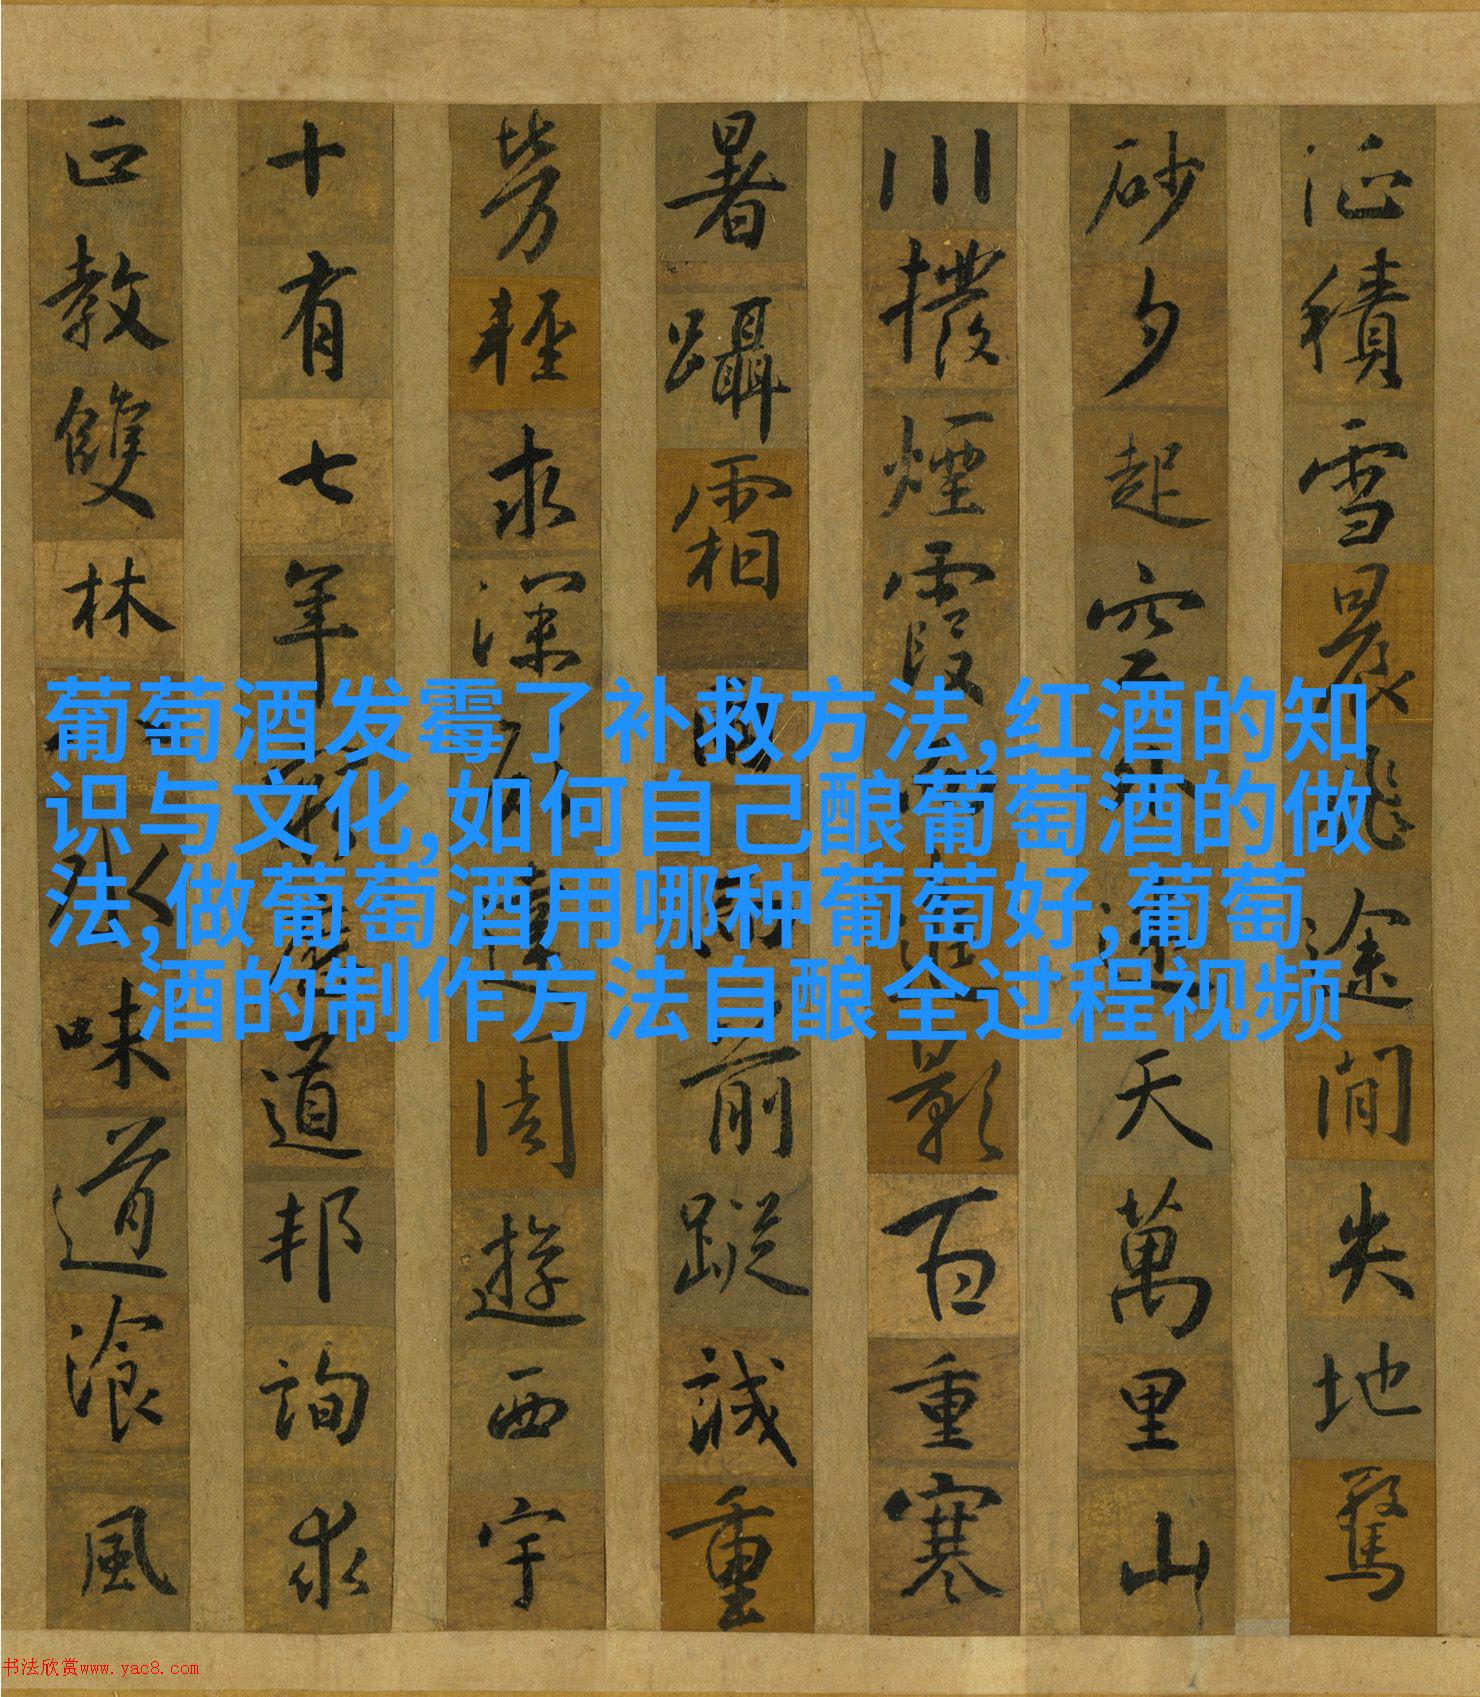 征積雪晨飛途間失地驚
砂夕起空外迷天萬里山
川撥煙霞而進影百重寒
暑躡霜雨而前蹤誠重
勞輕求深願達周遊西宇
十有七年窮歷道邦詢求
正教雙林八水味道飡風
葡萄酒发霉了补救方法,红酒的知
识与文化,如何自己酿葡萄酒的做
法,做葡萄酒用哪种葡萄好,葡萄
酒的制作方法自酿全过程视频
书法欣赏www.yac8.com